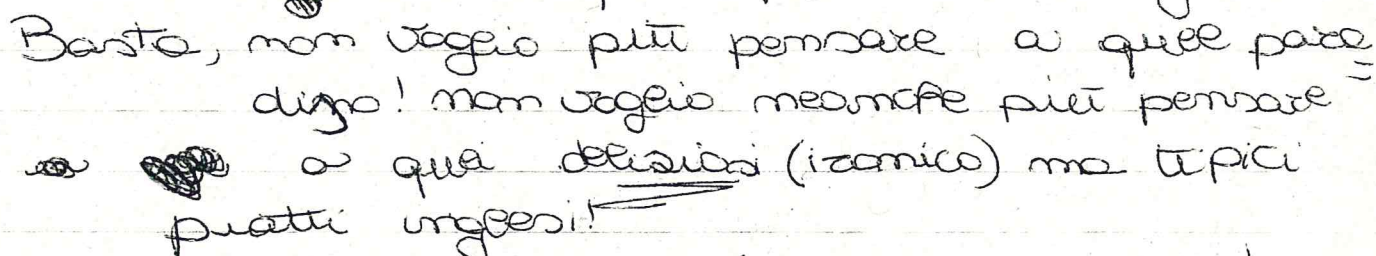 Basta, non voglio più pensare a quel para=
diso! non voglio neanche più pensare
a quei deliziosi (ironico) ma tipici
piatti inglesi!